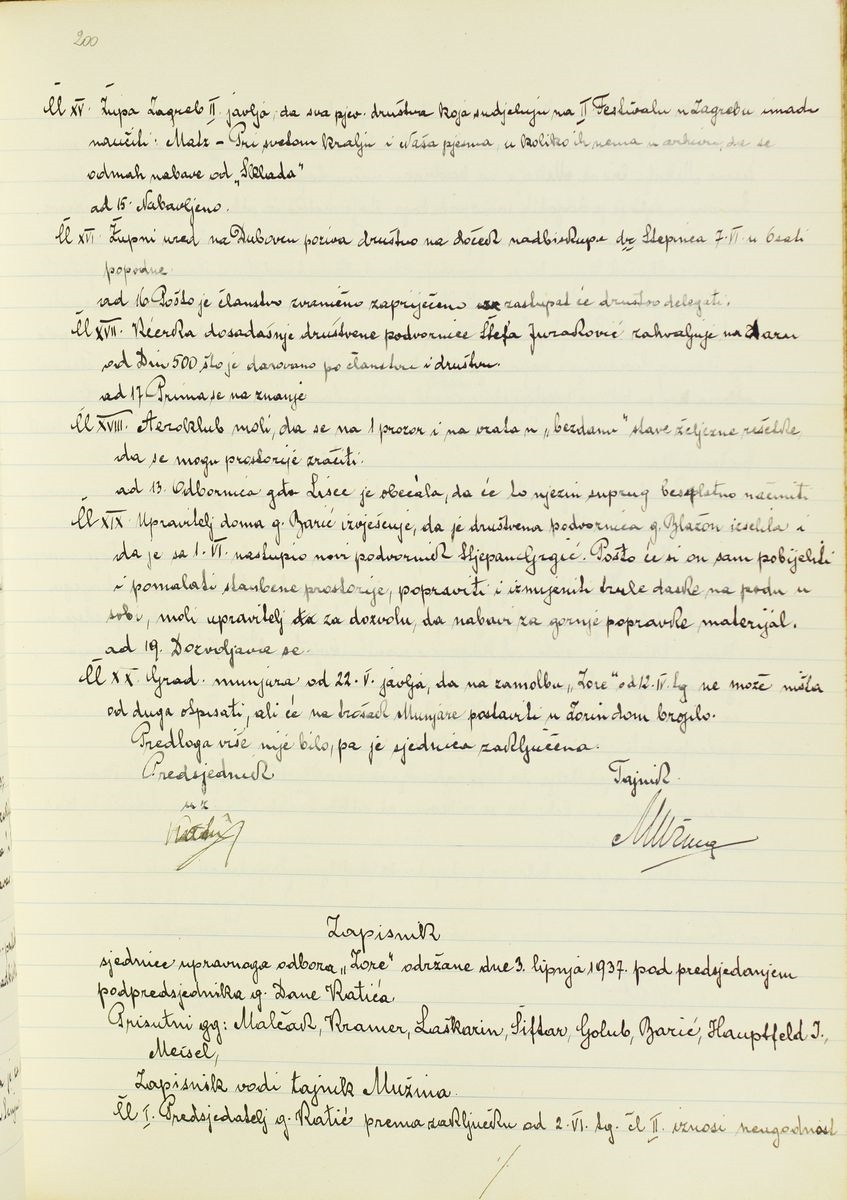 200
Čl XV. Župa Zagreb II. javlja, da sva pjev. društva koja sudjeluju na II Festivalu u Zagrebu imadu
naučiti: Matz – Pri svetom kralju i Naša pjesma, u koliko ih nema u arhivu, da se
odmah nabave od „Sklada"
ad 15. Nabavljeno.
Čl XVI. Župni ured na Dubovcu poziva društvo na doček nadbiskupa dr Stepinca 7. VI. u 6 sati
popodne.
ad 16 Pošto je članstvo zvanično zapriječeno zastupat će društvo delegati.
Čl XVII. Kćerka dosadašnje društvene podvornice Štefa Juraković zahvaljuje na Daru
od Din 500 što je darovano po članstvu i društvu.
ad 17 Prima se na znanje
Čl XVIII. Aeroklub moli, da se na 1 prozor i na vrata u „bezdanu" stave željezne rešetke,
da se mogu prostorije zračiti.
ad 13. Odbornica gđa Lisec je obećala, da će to njezin suprug besplatno načiniti
Čl XIX Upravitelj doma g. Barić izvješćuje, da je društvena podvornica g. Blažon izselila i
da je sa 1. VI. nastupio novi podvornik Stjepan Grgić. Pošto će si on sam pobijeliti
i pomalati stanbene prostorije, popraviti i izmijeniti trule daske na podu u
sobi, moli upravitelj za dozvolu, da nabavi za gornje popravke materijal.
ad 19. Dozvoljava se.
Čl XX Grad. munjara od 22. V. javlja, da na zamolbu „Zore" od 12. IV. tg ne može ništa
od duga otpisati, ali će na trošak Munjare postaviti u Zorin dom brojilo.
Predloga više nije bilo, pa je sjednica zaključena.
Predsjednik Tajnik.
uz
Katić Mužina
Zapisnik
sjednice upravnoga odbora „Zore" održane dne 3. lipnja 1937. pod predsjedanjem
podpredsjednika g. Dane Katića
Prisutni gg: Malčak, Kramer, Laškarin, Šiftar, Golub, Barić, Hauptfeld I.,
Meisel,
Zapisnik vodi tajnik Mužina.
Čl I. Predsjedatelj g. Katić prema zaključku od 2. VI. tg. čl II. iznosi neugodnost
./.